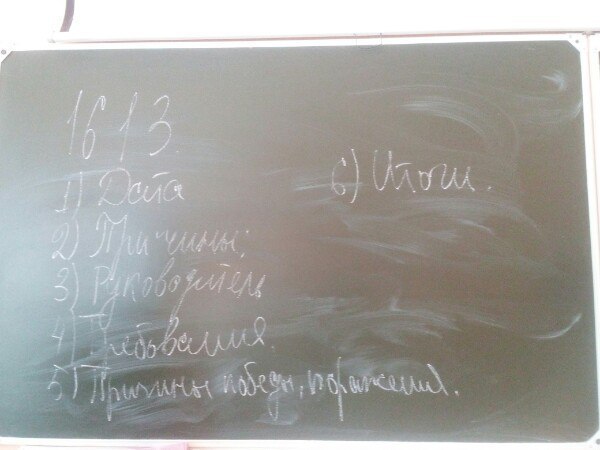 1613.
1) Дата
2) Причины;
3) Руководитель
4) Требования.
5) Причины победы, поражения.
6) Итоги.